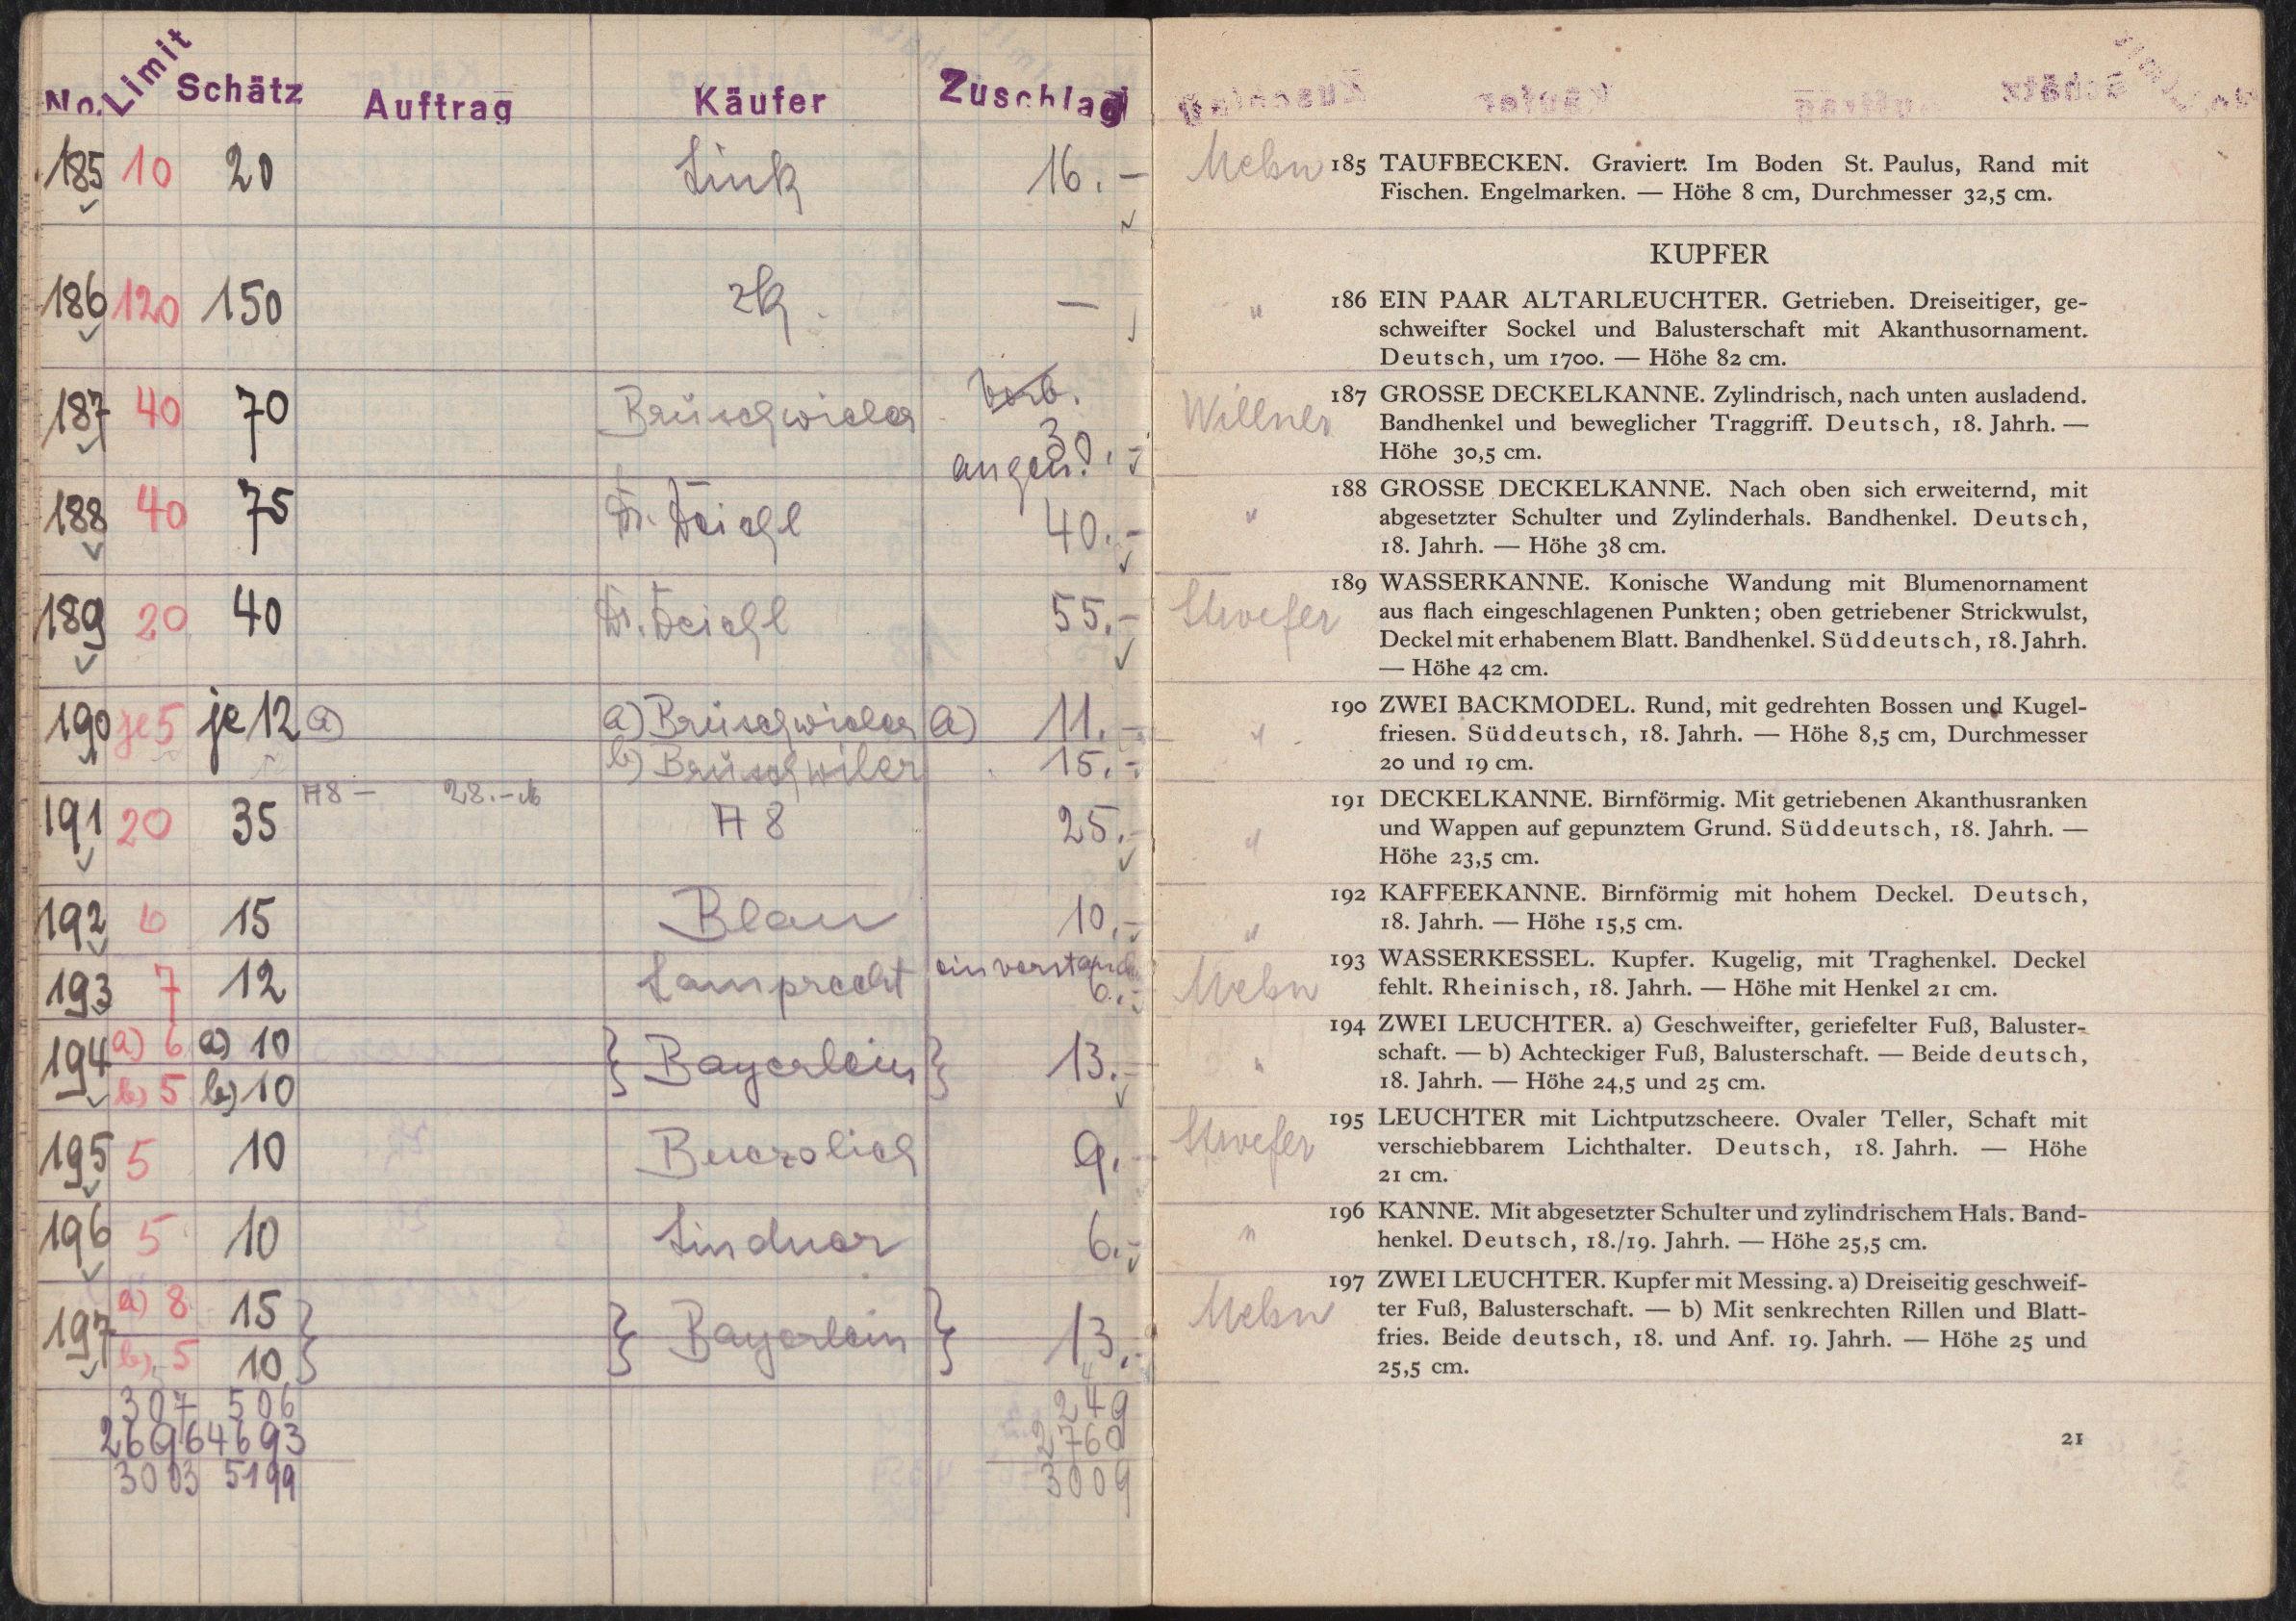 No. Limit Schätz Auftrag Käufer Zuschlag
185 10 20 Link 16.-
186 120 150 zk. —
187 40 70 Brüschwieler vorb.
30.-
angen.
188 40 75 Dr. Deichl 40.-
189 20 40 Dr. Deichl 55.-
190 je 5 je 12 a) a) Brüschwieler a) 11.-
b) Brüschwiler 15.-
191 20 35 A8 — 28.- A 8 25.-
192 6 15 Blau 10.-
193 7 12 Lamprecht einverstand.
6.-
194 a) 6 a) 10 } Bayerlein } 13.-
b) 5 b) 10
195 5 10 9.-
196 5 10 Lindner 6.-
197 a) 8 15 } } Bayerlein } 13.-
b) 5 10
307 506 249
2696 4693 2760
3003 5199 3009
Mehn 185 TAUFBECKEN. Graviert. Im Boden St. Paulus, Rand mit
Fischen. Engelmarken. — Höhe 8 cm, Durchmesser 32,5 cm.
KUPFER
" 186 EIN PAAR ALTARLEUCHTER. Getrieben. Dreiseitiger, ge-
schweifter Sockel und Balusterschaft mit Akanthusornament.
Deutsch, um 1700. — Höhe 82 cm.
Willner 187 GROSSE DECKELKANNE. Zylindrisch, nach unten ausladend.
Bandhenkel und beweglicher Traggriff. Deutsch, 18. Jahrh. —
Höhe 30,5 cm.
" 188 GROSSE DECKELKANNE. Nach oben sich erweiternd, mit
abgesetzter Schulter und Zylinderhals. Bandhenkel. Deutsch,
18. Jahrh. — Höhe 38 cm.
189 WASSERKANNE. Konische Wandung mit Blumenornament
aus flach eingeschlagenen Punkten; oben getriebener Strickwulst,
Deckel mit erhabenem Blatt. Bandhenkel. Süddeutsch, 18. Jahrh.
— Höhe 42 cm.
" 190 ZWEI BACKMODEL. Rund, mit gedrehten Bossen und Kugel-
friesen. Süddeutsch, 18. Jahrh. — Höhe 8,5 cm, Durchmesser
20 und 19 cm.
" 191 DECKELKANNE. Birnförmig. Mit getriebenen Akanthusranken
und Wappen auf gepunztem Grund. Süddeutsch, 18. Jahrh. —
Höhe 23,5 cm.
" 192 KAFFEEKANNE. Birnförmig mit hohem Deckel. Deutsch,
18. Jahrh. — Höhe 15,5 cm.
Mehn 193 WASSERKESSEL. Kupfer. Kugelig, mit Traghenkel. Deckel
fehlt. Rheinisch, 18. Jahrh. — Höhe mit Henkel 21 cm.
" 194 ZWEI LEUCHTER. a) Geschweifter, geriefelter Fuß, Baluster-
schaft. — b) Achteckiger Fuß, Balusterschaft. — Beide deutsch,
18. Jahrh. — Höhe 24,5 und 25 cm.
195 LEUCHTER mit Lichtputzscheere. Ovaler Teller, Schaft mit
verschiebbarem Lichthalter. Deutsch, 18. Jahrh. — Höhe
21 cm.
" 196 KANNE. Mit abgesetzter Schulter und zylindrischem Hals. Band-
henkel. Deutsch, 18./19. Jahrh. — Höhe 25,5 cm.
Mehn 197 ZWEI LEUCHTER. Kupfer mit Messing. a) Dreiseitig geschweif-
ter Fuß, Balusterschaft. — b) Mit senkrechten Rillen und Blatt-
fries. Beide deutsch, 18. und Anf. 19. Jahrh. — Höhe 25 und
25,5 cm.
21